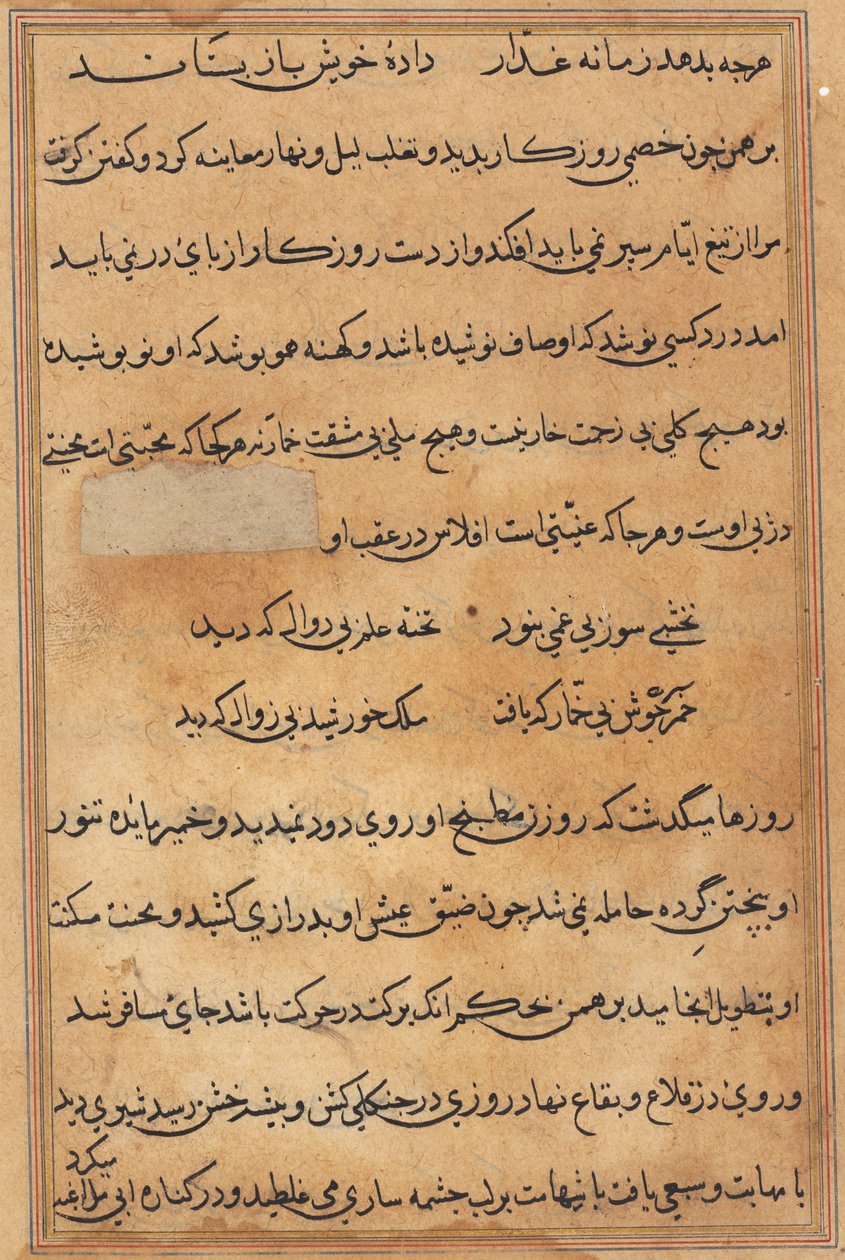 هرجه بدهد زمانه غدّار دادهٔ خویش باز بستاند
برهمن جون خصمی روزکار بدید و تغلب لیل و نهار معاینه کرد و کفتن کرفت
مرا از تیغ ایّام سپر نمی باید افکند و از دست روزکار از بایٔ در نمی باید
امد درد کسی نوشد که او صاف نوشیده باشد و کهنه همو بوشد که او نو بوشیده
بود هیج کلی بی زحمت خار نیست و هیج ملی بی مشقت خمار نه هر کجا که محبّتی است محنتی
در بی اوست و هر جا که غنیّتی است افلاس در عقب او
نخشبی سوز بی غمی بنود تخته علم بی دوالی که دید
خمر جوش بی خمّار که یافت ملک خورشید بی زوال که دید
روزها میگذشت که روزن مطبخ او روی دود نمیدید و خمیر مایٔده تنور
او بپختن گرده حامله نمی شد جون ضیّق عیش او بدرازی کشید و محنت مسکنت
او بتطویل انجامید برهمن بحکم انک برکت در حرکت باشد جایٔ مسافر شد
و رویٔ در قلاع و بقاع نهاد روزی در جنکلی کشن و بیشه خشن رسید شیری دید
با مهابت و سبعی یافت با شهامت بر لب جشمه ساری می غلطید و در کناره ابی مراغه
میکرد